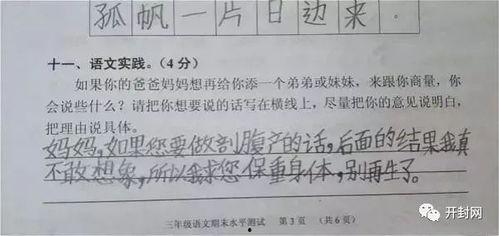 孤帆一片日边来.
十一、语文实践。(4分)
如果你的爸爸妈妈想再给你添一个弟弟或妹妹，来跟你商量，你
会说些什么？请把你想要说的话写在横线上，尽量把你的意见说明白，
把理由说具体。
妈妈,如果您要做剖腹产的话,后面的结果我真
不敢想象,所以我求您保重身体,别再生了。
三年级语文期末水平测试 第3页 （共6页）
开封网